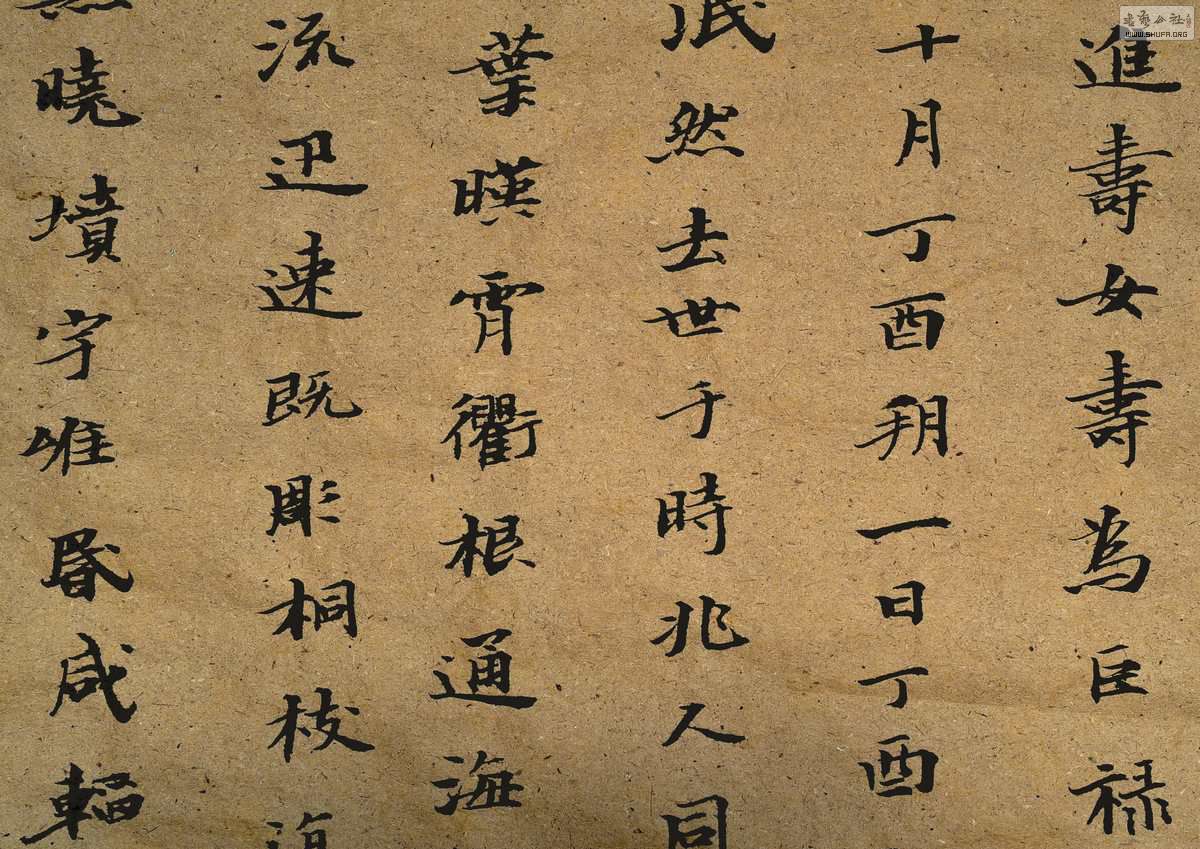 進壽女壽為臣禄
十月丁酉朔一日丁酉
泯然去世于時兆人同
葉暎霄衢根通海
流迅速既彫桐枝
曉墳宇唯昬咸輻
書藝公社
WWW.SHUFA.ORG